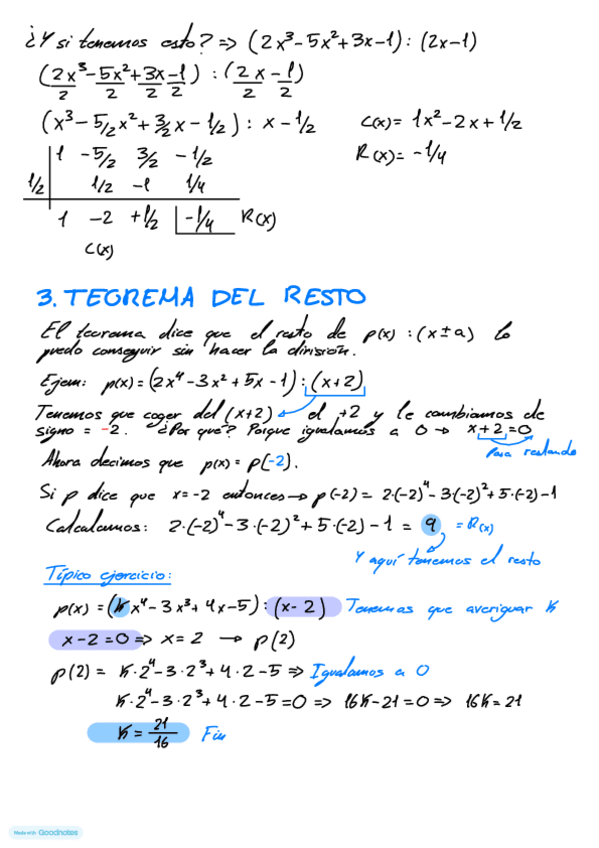 ¿Y si tenemos esto? => (2x³-5x²+3x-1) : (2x-1)
(2x³/2 - 5x²/2 + 3x/2 - 1/2) : (2x/2 - 1/2)
(x³ - 5/2x² + 3/2x - 1/2) : x - 1/2
C(x) = 1x² - 2x + 1/2
R(x) = -1/4
1 -5/2 3/2 -1/2
1/2 1/2 -1 1/4
1 -2 +1/2 -1/4 R(x)
C(x)
3. TEOREMA DEL RESTO
El teorema dice que el resto de p(x) : (x±a) lo
puedo conseguir sin hacer la división.
Ejem: p(x) = (2x⁴ - 3x² + 5x - 1) : (x+2)
Tenemos que coger del (x+2) el +2 y le cambiamos de
signo = -2. ¿Por qué? Porque igualamos a 0 → x+2=0
Pasa restando
Ahora decimos que p(x) = p(-2).
Si p dice que x = -2 entonces → p(-2) = 2·(-2)⁴ - 3·(-2)² + 5·(-2) - 1
Calculamos: 2·(-2)⁴ - 3·(-2)² + 5·(-2) - 1 = 9 = R(x)
Y aquí tenemos el resto
Típico ejercicio:
p(x) = (Kx⁴ - 3x³ + 4x - 5) : (x - 2) Tenemos que averiguar K
x - 2 = 0 => x = 2 → p(2)
p(2) = K·2⁴ - 3·2³ + 4·2 - 5 => Igualamos a 0
K·2⁴ - 3·2³ + 4·2 - 5 = 0 => 16K - 21 = 0 => 16K = 21
K = 21/16 Fin
Made with Goodnotes